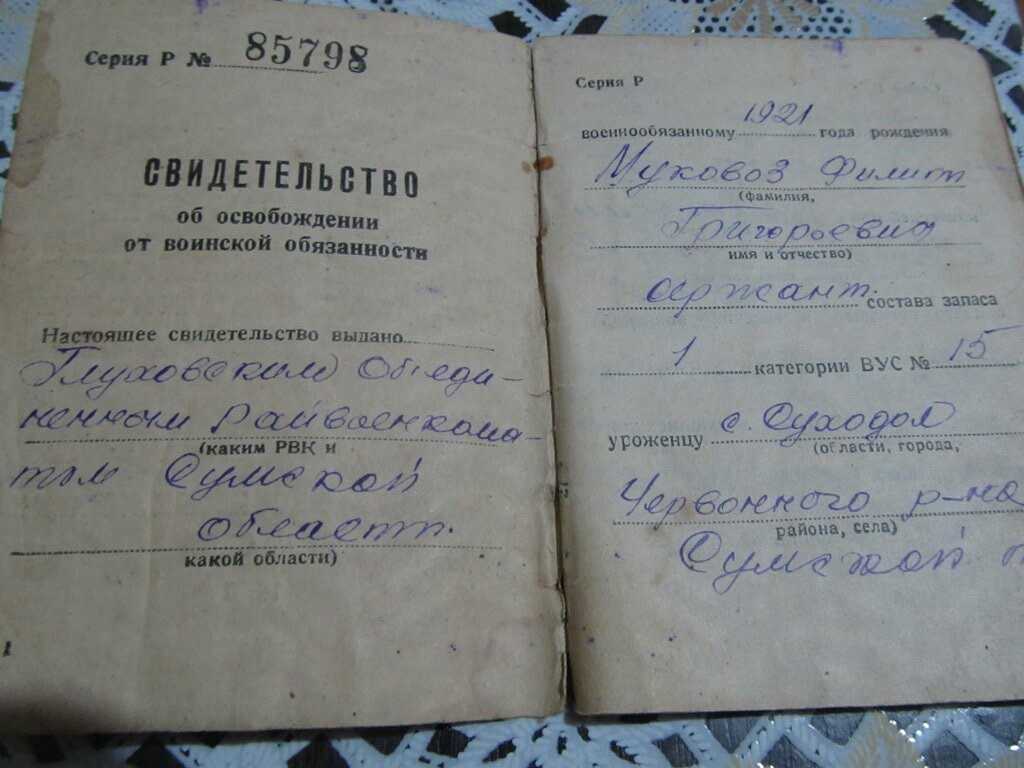 Серия Р № 85798
СВИДЕТЕЛЬСТВО
об освобождении
от воинской обязанности
Настоящее свидетельство выдано
Глуховским Объеди-
ненным Райвоенкома-
(каким РВК и
том Сумской
области.
какой области)
1
Серия Р
военнообязанному 1921 года рождения
Муховоз Филипп
(фамилия,
Григорьевич
имя и отчество)
сержант. состава запаса
1 категории ВУС № 15
уроженцу с. Суходол
(области, города,
Червонного р-на
района, села)
Сумской